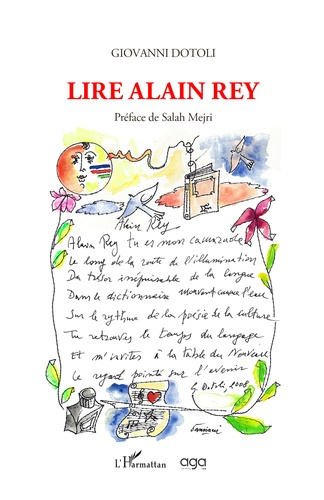 GIOVANNI DOTOLI
LIRE ALAIN REY
Préface de Salah Mejri
Alain Rey
Alain Rey tu es mon camarade
Le long de la route de l'illumination
Du trésor inépuisable de la langue
Dans le dictionnaire mouvant comme l'eau
Sur le rythme de la poésie de la culture
Tu retrouves le temps du langage
Et m'invites à la table du Nouveau
Le regard pointé sur l'avenir
G. Dotoli 2008
L'Harmattan
aga